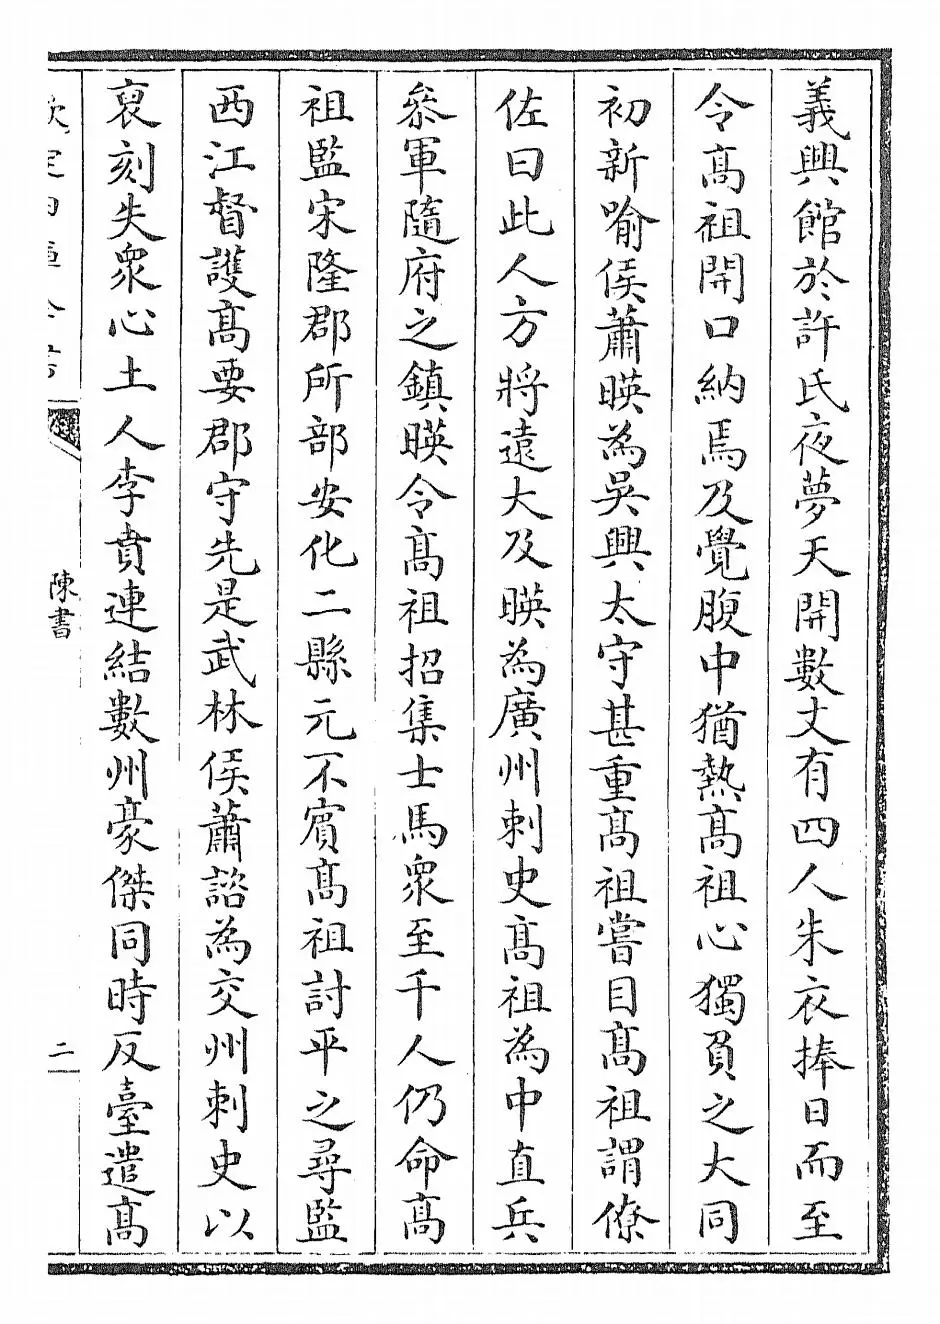 義興館於許氏夜夢天開數丈有四人朱衣捧日而至
令髙祖開口納焉及覺腹中猶熱髙祖心獨負之大同
初新喻侯蕭暎為吳興太守甚重髙祖嘗目髙祖謂僚
佐曰此人方將逺大及暎為廣州刺史髙祖為中直兵
叅軍隨府之鎮暎令髙祖招集士馬衆至千人仍命髙
祖監宋隆郡所部安化二縣元不賔髙祖討平之尋監
西江督護髙要郡守先是武林侯蕭諮為交州刺史以
裒刻失衆心土人李賁連結數州豪傑同時反臺遣髙
陳書
二